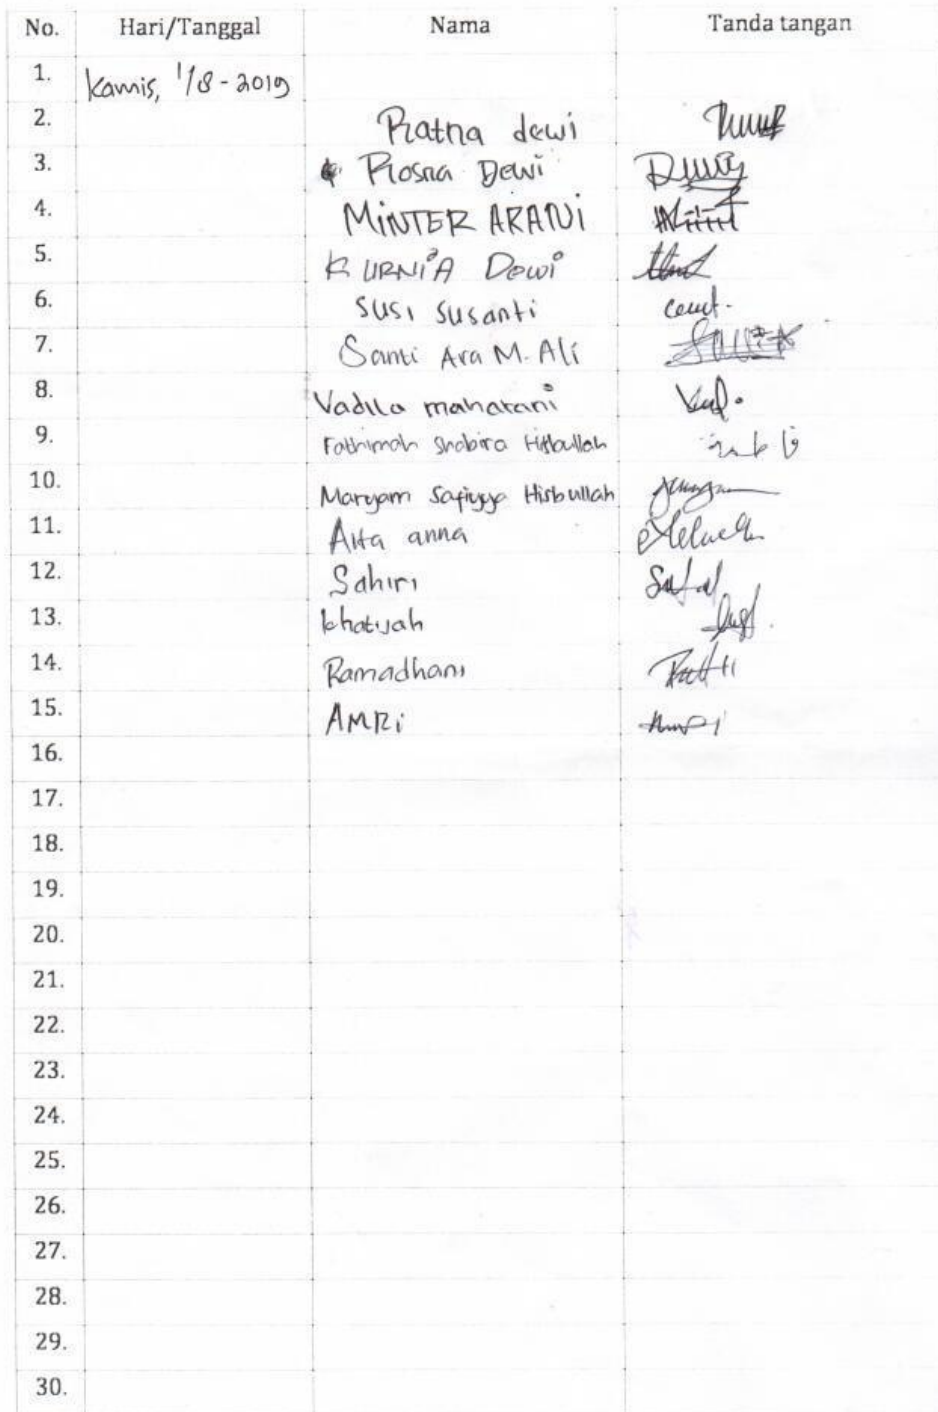 No. Hari/Tanggal Nama Tanda tangan
1. Kamis, 1/8-2019
2. Ratna dewi
3. Rosna Dewi
4. MiNTER ARANi
5. KURNiA Dewi
6. Susi Susanti
7. Santi Ara M. Ali
8. Vadila maharani
9. Fathimah Shabira Hisbullah فاطمة
10. Maryam Safiyya Hisbullah
11. Aita anna
12. Sahiri
13. khatijah
14. Ramadhani
15. AMRi
16.
17.
18.
19.
20.
21.
22.
23.
24.
25.
26.
27.
28.
29.
30.